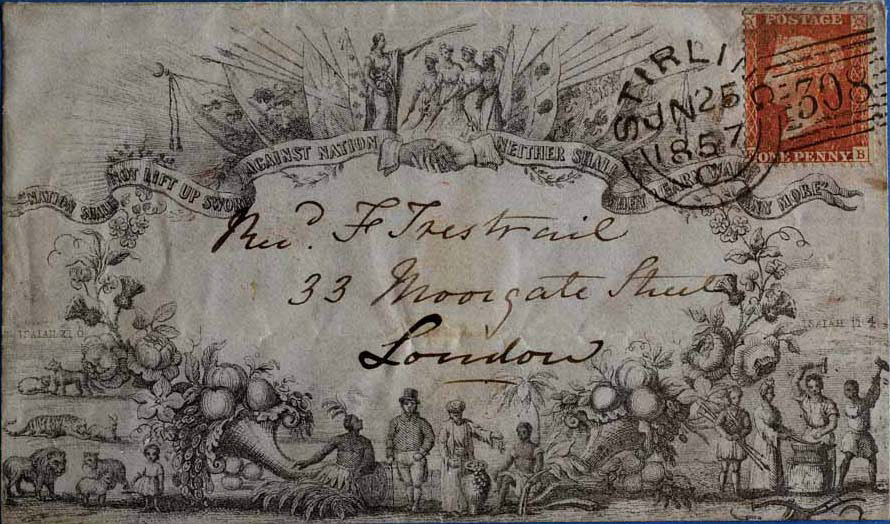 POSTAGE
STIRLIN
JN 25
1857
308
ONE PENNY B
"NATION SHALL NOT LIFT UP SWORD AGAINST NATION NEITHER SHALL THEY LEARN WAR ANY MORE"
Revd. F Trestrail
33 Moorgate Street
London
ISAIAH 11 4